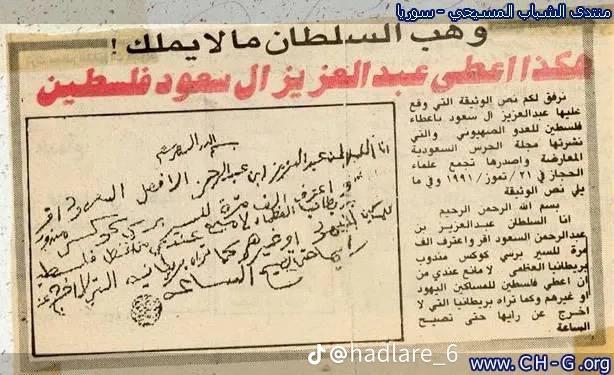 منتدى الشباب المسيحي - سوريا
وهب السلطان مالايملك !
هكذا اعطى عبدالعزيز ال سعود فلسطين
نرفق لكم نص الوثيقة التي وقع
عليها عبدالعزيز ال سعود باعطاء
فلسطين للعدو الصهيوني والتي
نشرتها مجلة الحرس السعودية
المعارضة واصدرها تجمع علماء
الحجاز في ٢١/تموز/١٩٩١ وفي ما
يلي نص الوثيقة
بسم الله الرحمن الرحيم
انا السلطان عبدالعزيز بن
عبدالرحمن السعود اقر واعترف الف
مرة للسير برسي كوكس مندوب
بريطانيا العظمى لا مانع عندي من
ان اعطي فلسطين للمساكين اليهود
او غيرهم وكما تراه بريطانيا التي لا
اخرج عن رايها حتى تصيح
الساعة
بسم الله الرحمن الرحيم
انا السلطان عبد العزيز ابن عبد الرحمن
السعود اقر
واعترف الف مرة للسير برسي كوكس مندوب
بريطانيا العظمى لا مانع عندي
فلسطين
او غيرهم كما تراه بريطانيا التي لا اخرج عن
رايها حتى تصيح الساعة
@hadlare_6
www.CH-G.org